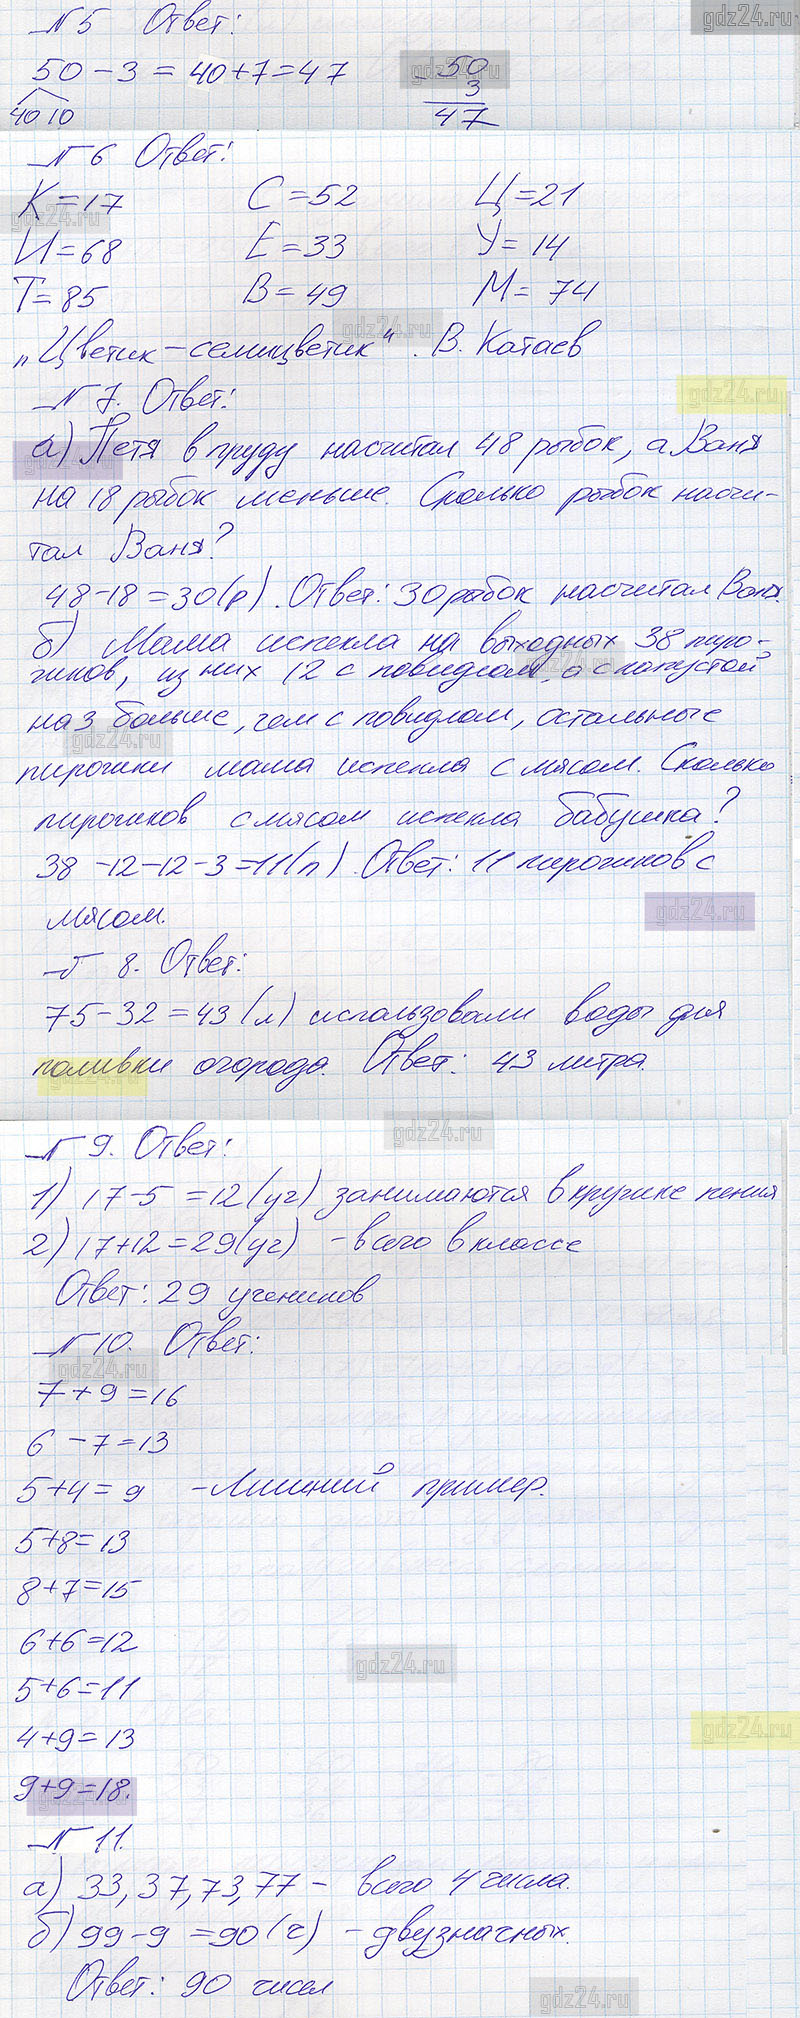 gdz24.ru
№5 Ответ:
50 - 3 = 40+7 = 47
40 10
- 50
3
47
№6 Ответ:
К = 17 С = 52 Ц = 21
И = 68 Е = 33 У = 14
Т = 85 В = 49 М = 74
„Цветик - семицветик". В. Катаев
№7. Ответ:
а) Петя в пруду насчитал 48 рыбок, а Ваня
на 18 рыбок меньше. Сколько рыбок насчи-
тал Ваня?
48 - 18 = 30 (р). Ответ: 30 рыбок насчитал Ваня.
б) Мама испекла на выходных 38 пиро-
гиков, из них 12 с повидлом, а с капустой
на 3 больше, чем с повидлом, остальные
пирожки мама испекла с мясом. Сколько
пирогиков с мясом испекла бабушка?
38 - 12 - 12 - 3 = 11 (п). Ответ: 11 пирогиков с
мясом.
8. Ответ:
75 - 32 = 43 (л) использовали воды для
поливки огорода. Ответ: 43 литра.
№9. Ответ:
1) 17 - 5 = 12 (уч) занимаются в кружке пения
2) 17 + 12 = 29 (уч) - всего в классе
Ответ: 29 учеников
№10. Ответ:
7 + 9 = 16
6 - 7 = 13
5 + 4 = 9 - Лишний пример.
5+8 = 13
8+7 = 15
6+6 = 12
5+6 = 11
4+9 = 13
9+9 = 18.
№11.
а) 33, 37, 73, 77 - всего 4 числа.
б) 99 - 9 = 90 (ч) - двузначных.
Ответ: 90 чисел
gdz24.ru